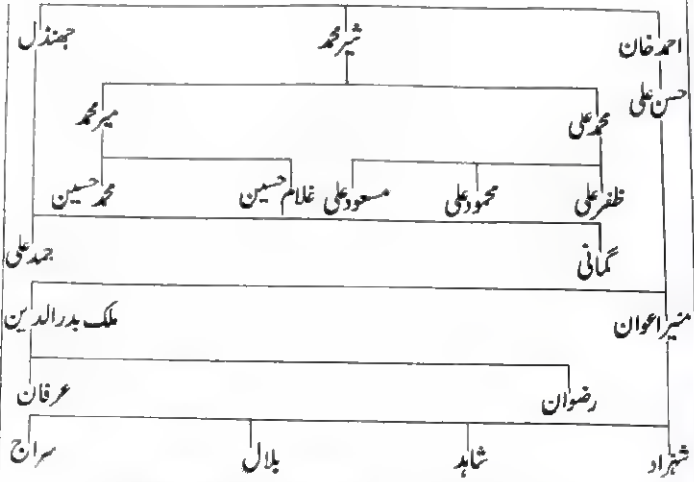 احمد خان شیر محمد جھنڈل
حسن علی
محمد علی میر محمد
ظفر علی محمود علی مسعود علی غلام حسین محمد حسین
گمانی جمد علی
منیر اعوان ملک بدرالدین
رضوان عرفان
شہزاد شاہد بلال سراج